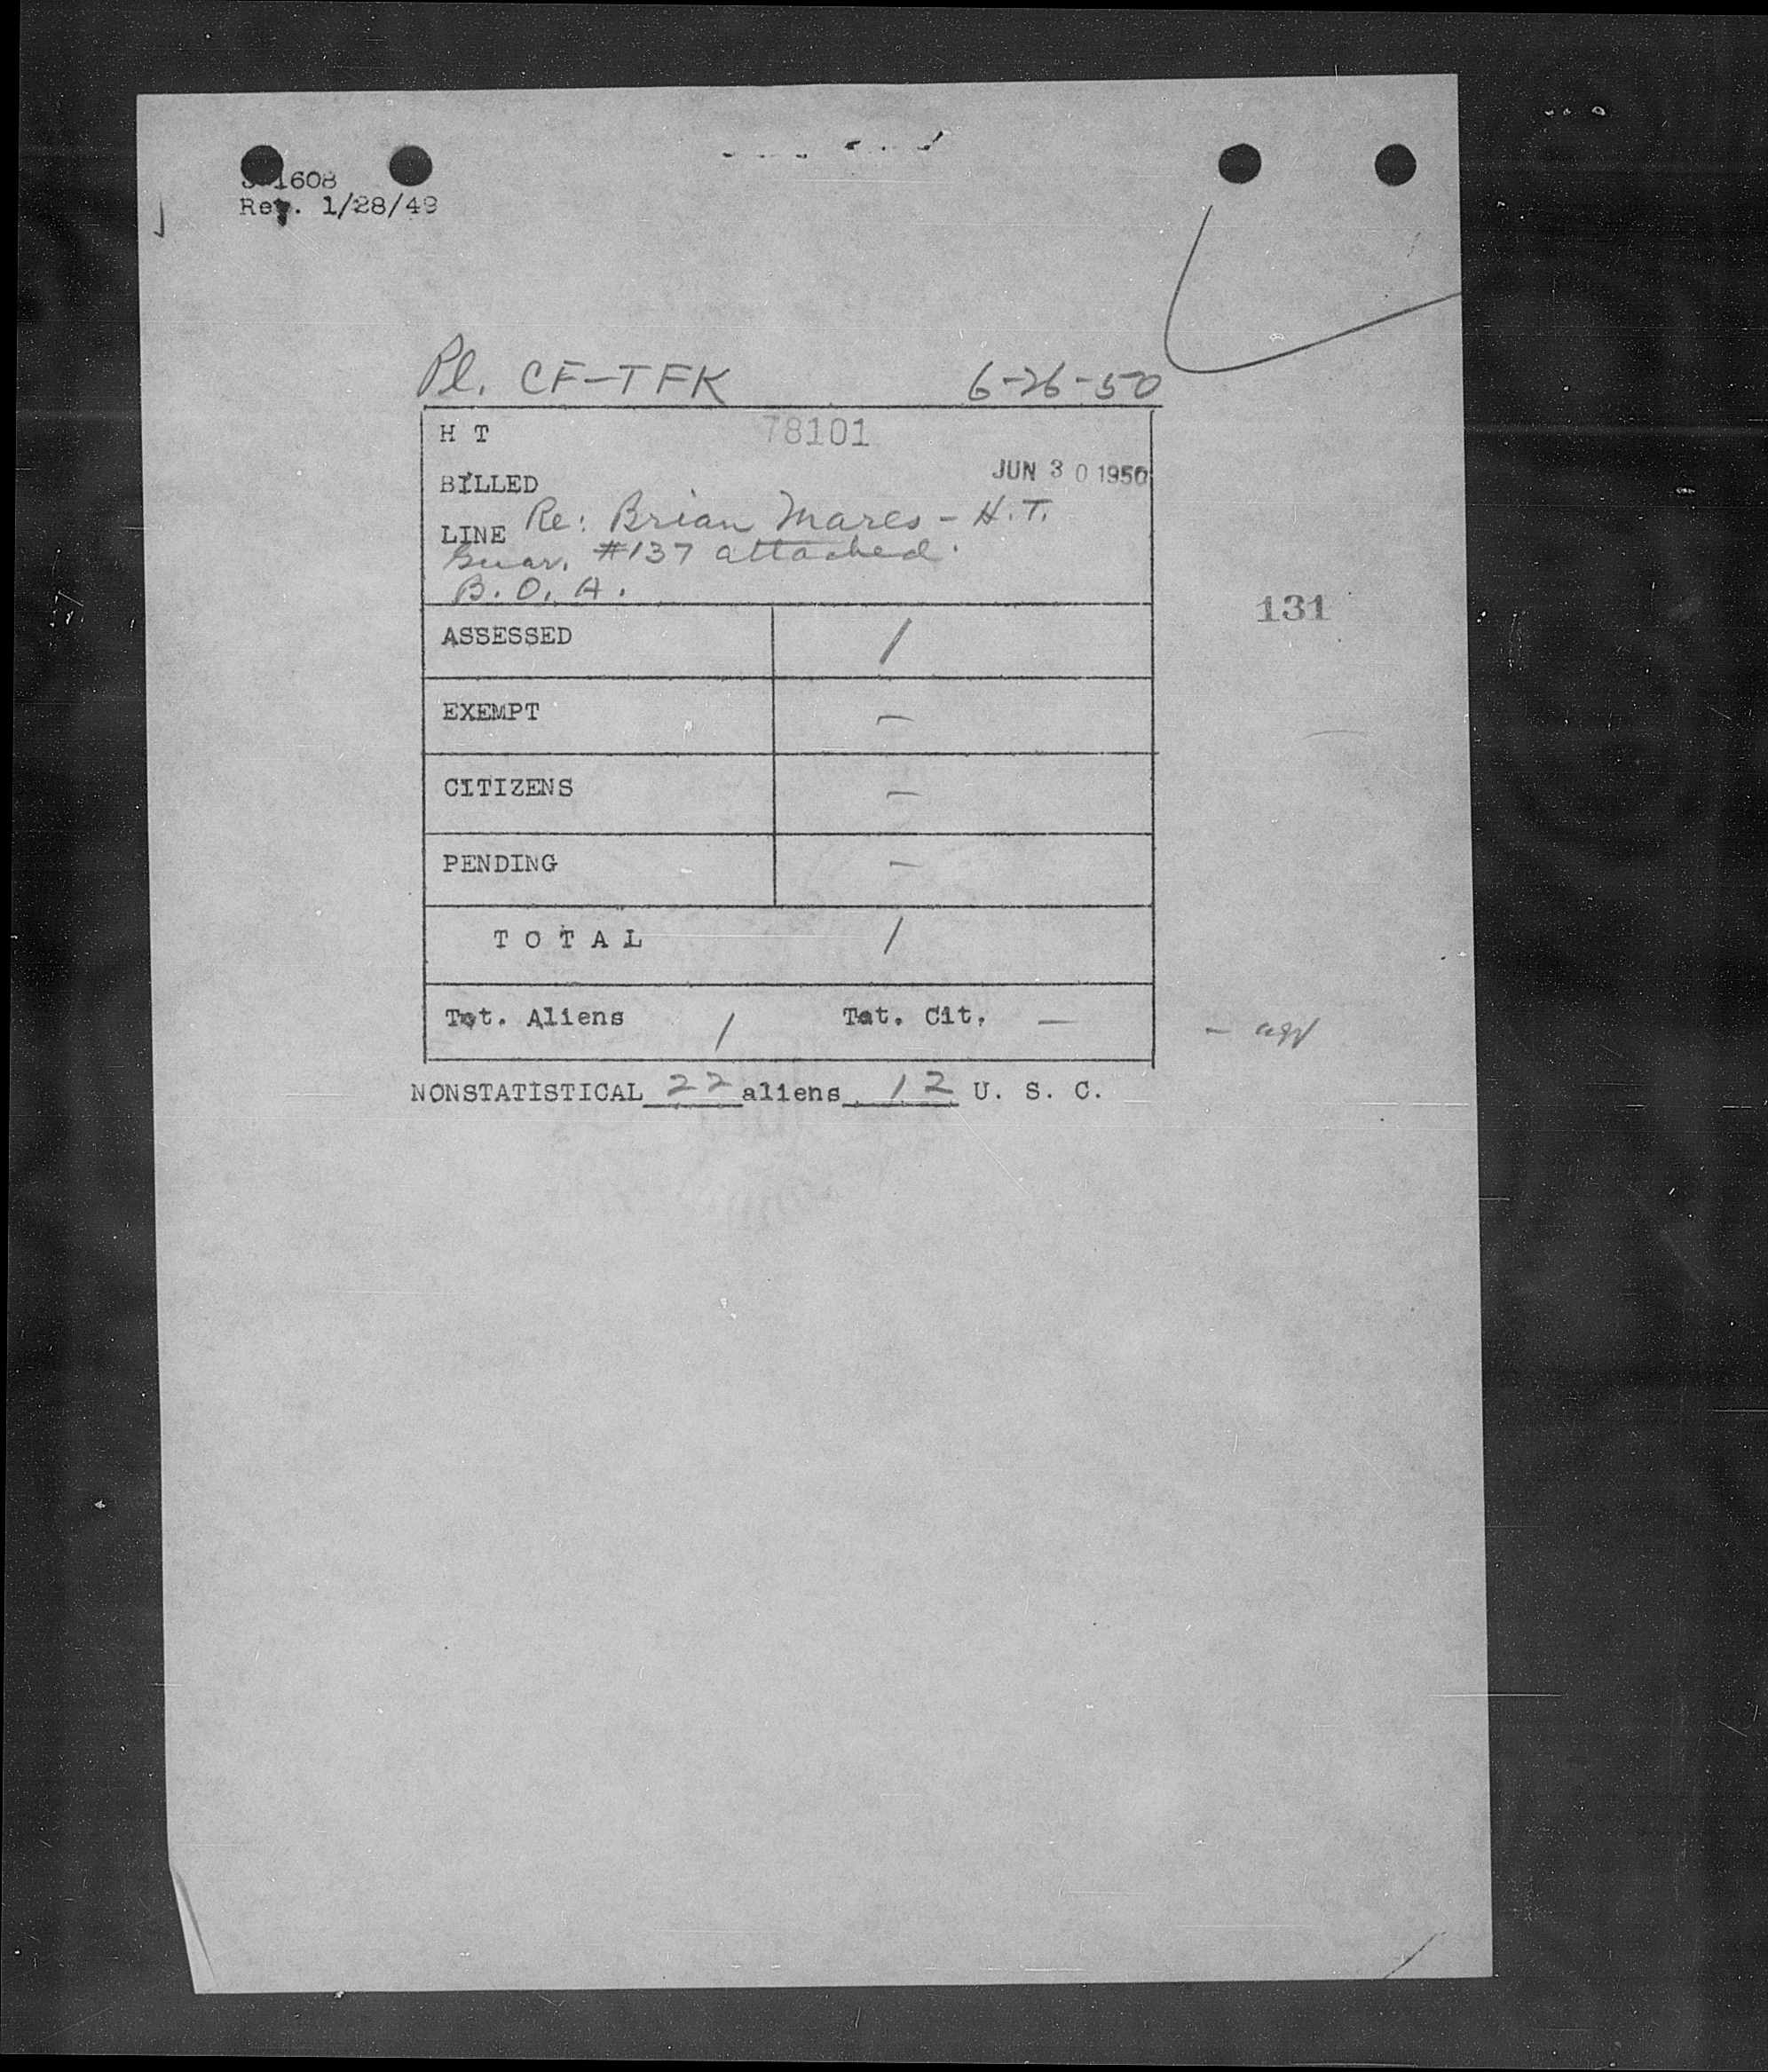 1608
Rev. 1/28/49
Pl. CF-TFK 6-26-50
H T 78101
BILLED JUN 30 1950
LINE Re: Brian Mares - H.T.
Guar. #137 attached.
B.O.A.
131
ASSESSED /
EXEMPT —
CITIZENS —
PENDING —
T O T A L /
Tot. Aliens / Tot. Cit. —
NONSTATISTICAL 22 aliens 12 U. S. C.